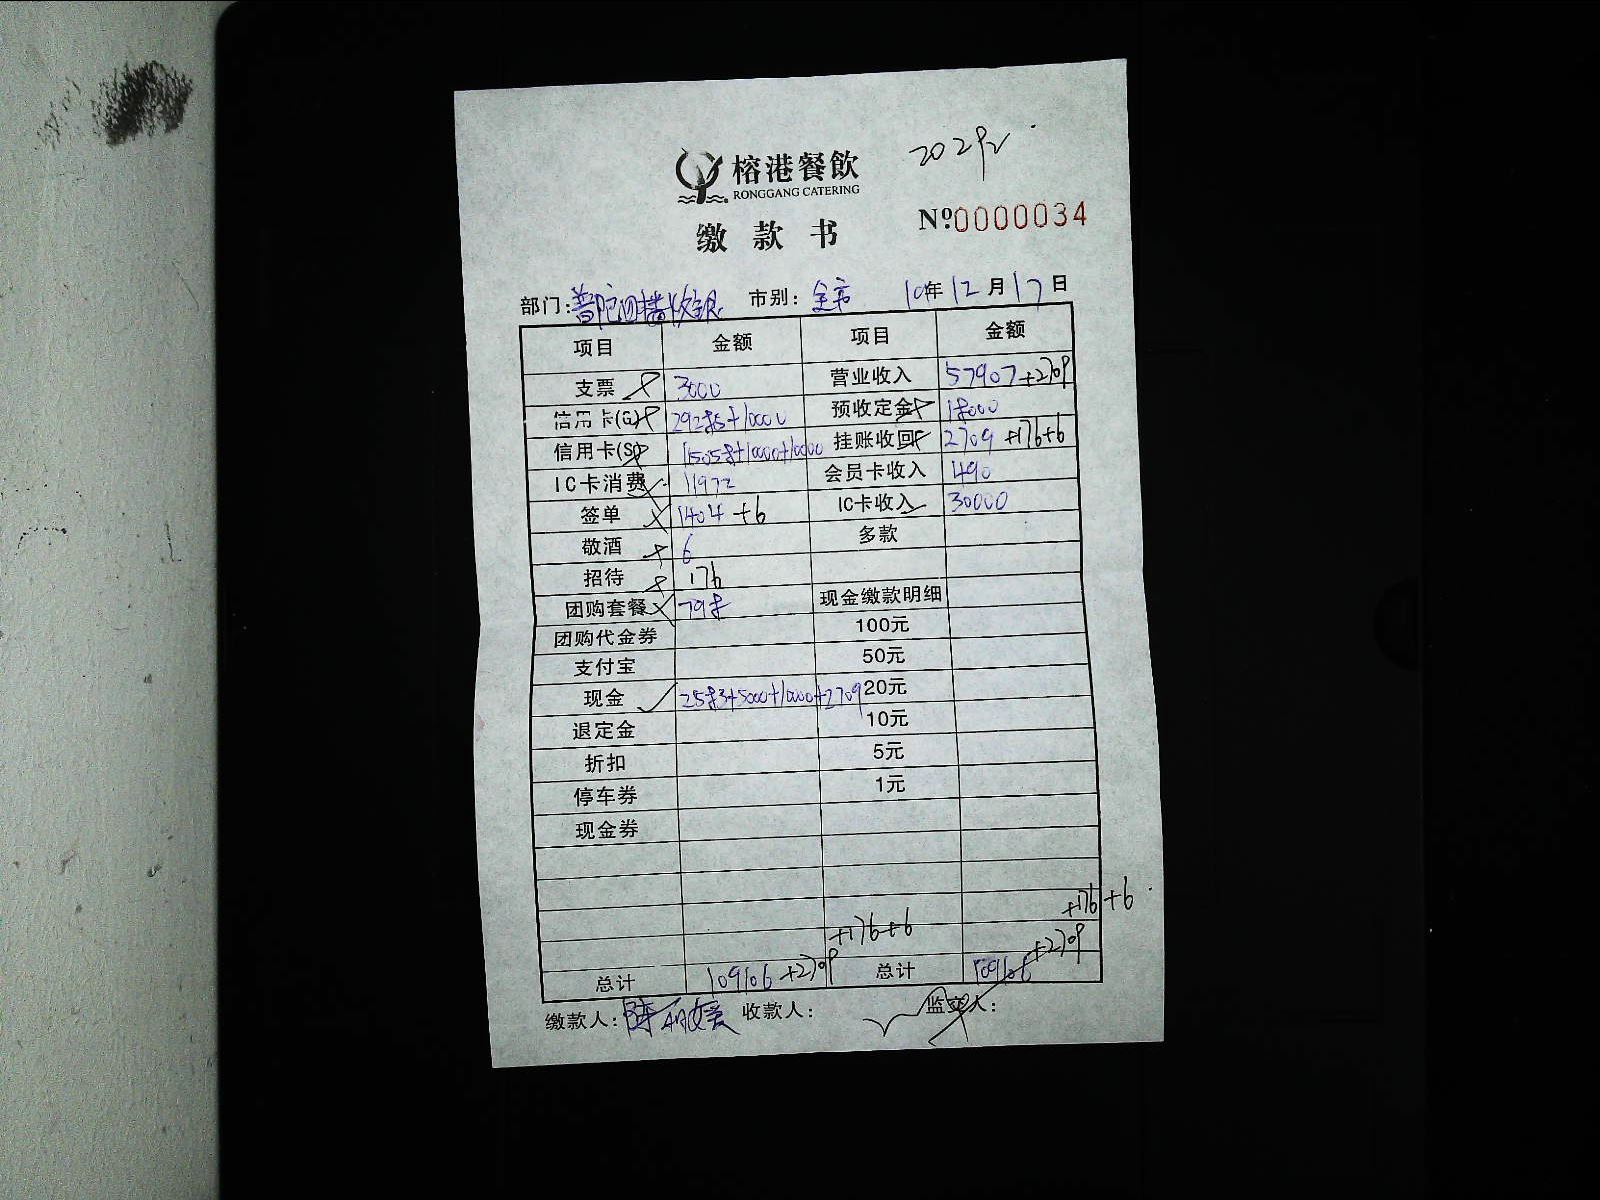 20292
榕港餐飲
RONGGANG CATERING
缴款书
Nº:0000034
部门: 市别: 10年12月17日
项目 金额 项目 金额
支票 3000 营业收入 57907+2709
信用卡(G) 29285+10000 预收定金 18000
信用卡(S) 15058+10000+10000 挂账收回 2709 +176+6
IC卡消费 11972 会员卡收入 490
签单 1404 +6 IC卡收入 30000
敬酒 6 多款
招待 176
团购套餐 798 现金缴款明细
团购代金券 100元
支付宝 50元
现金 2583+5000+10000+2709 20元
退定金 10元
折扣 5元
停车券 1元
现金券
+176+6 +176+6
总计 109106 +2709 总计 109106 +2709
缴款人: 收款人: 监交人: